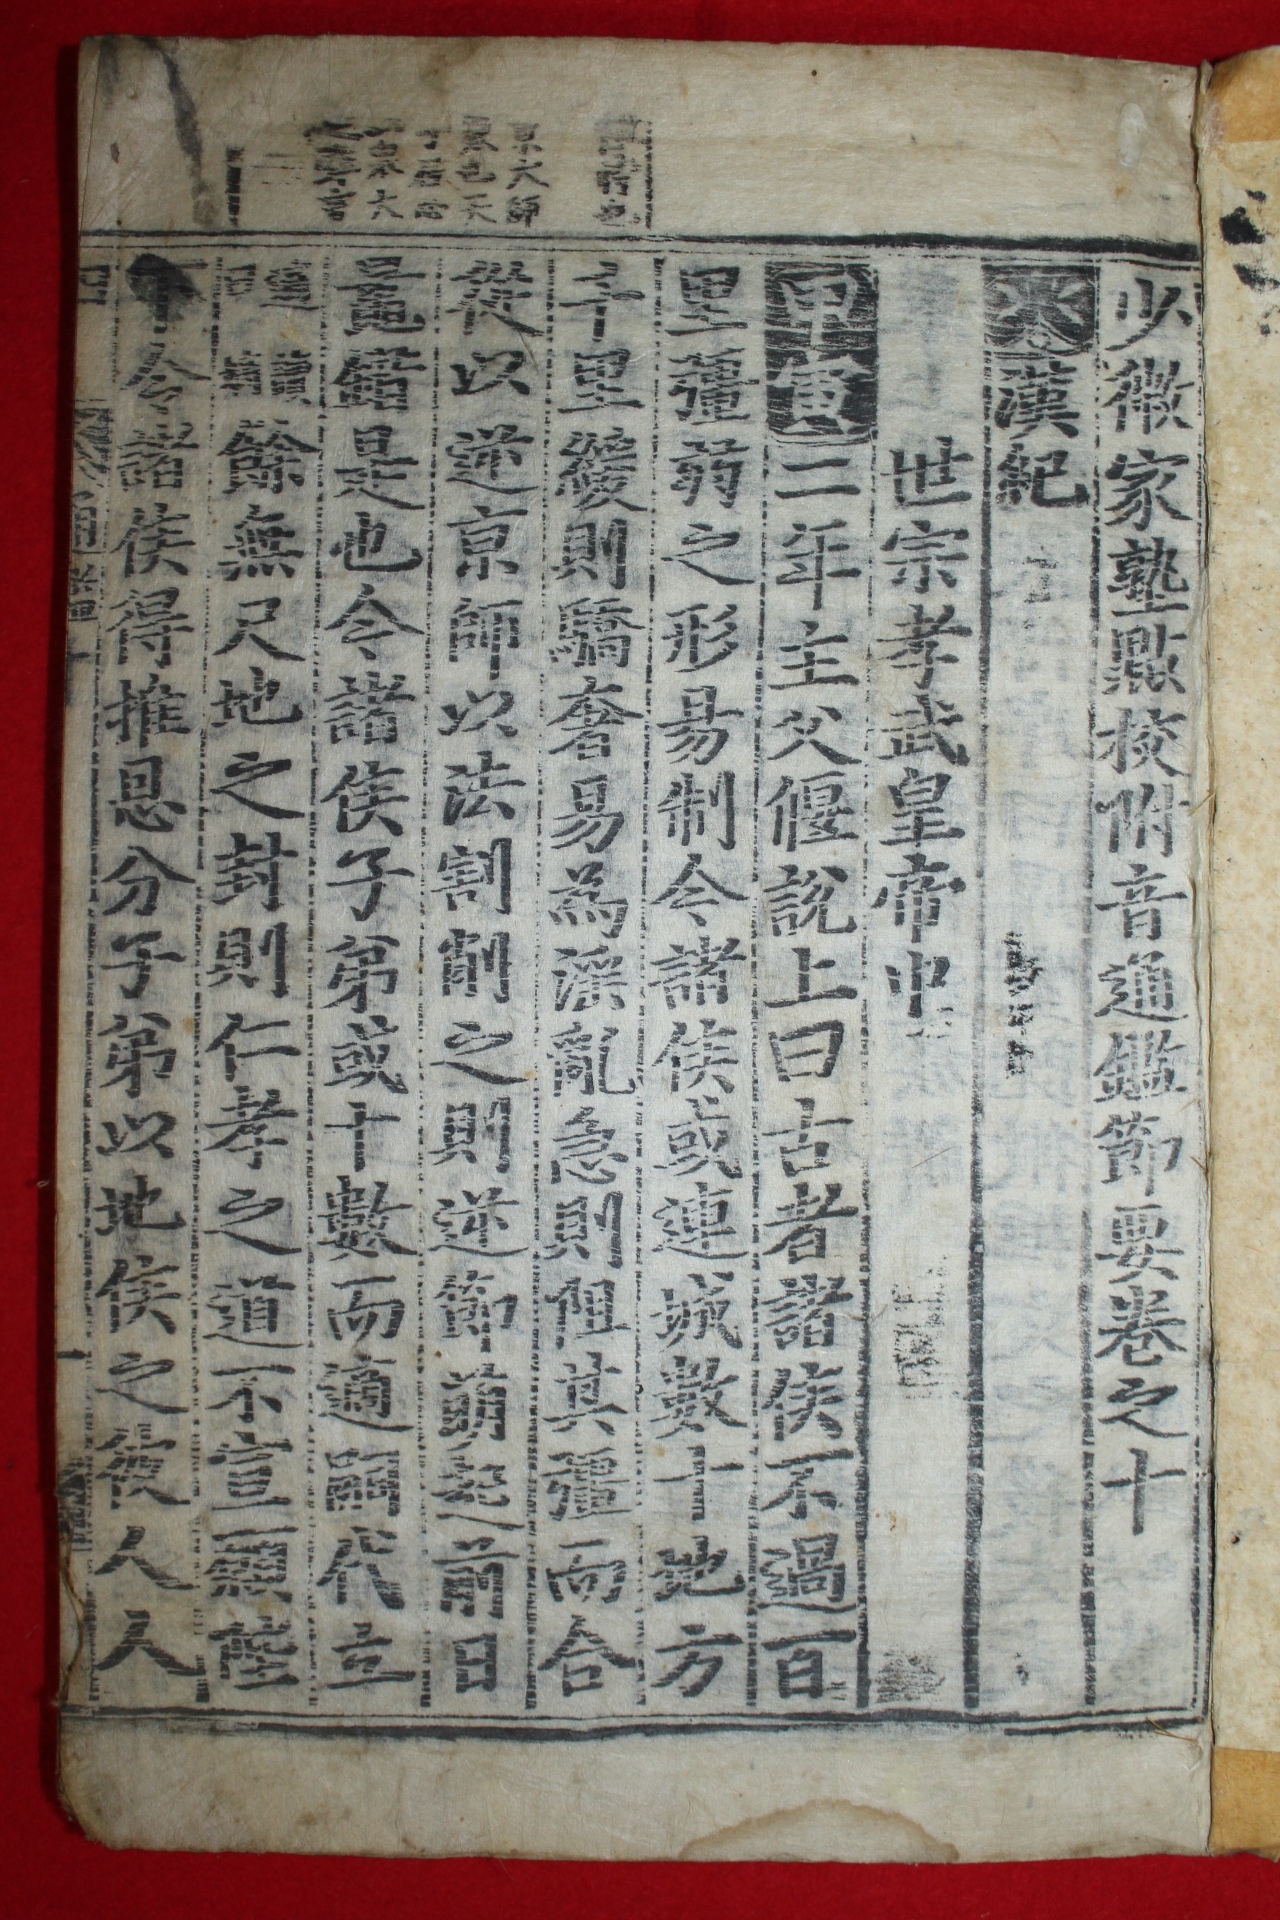 少微家塾點校附音通鑑節要卷之十
漢紀
世宗孝武皇帝中
甲寅二年主父偃說上曰古者諸侯不過百
里彊弱之形易制今諸侯或連城數十地方
千里緩則驕奢易爲淫亂急則阻其彊而合
從以逆京師以法割削之則逆節萌起前日
鼂錯是也今諸侯子弟或十數而適嗣代立
餘無尺地之封則仁孝之道不宣願陛
令諸侯得推恩分子弟以地侯之彼人人